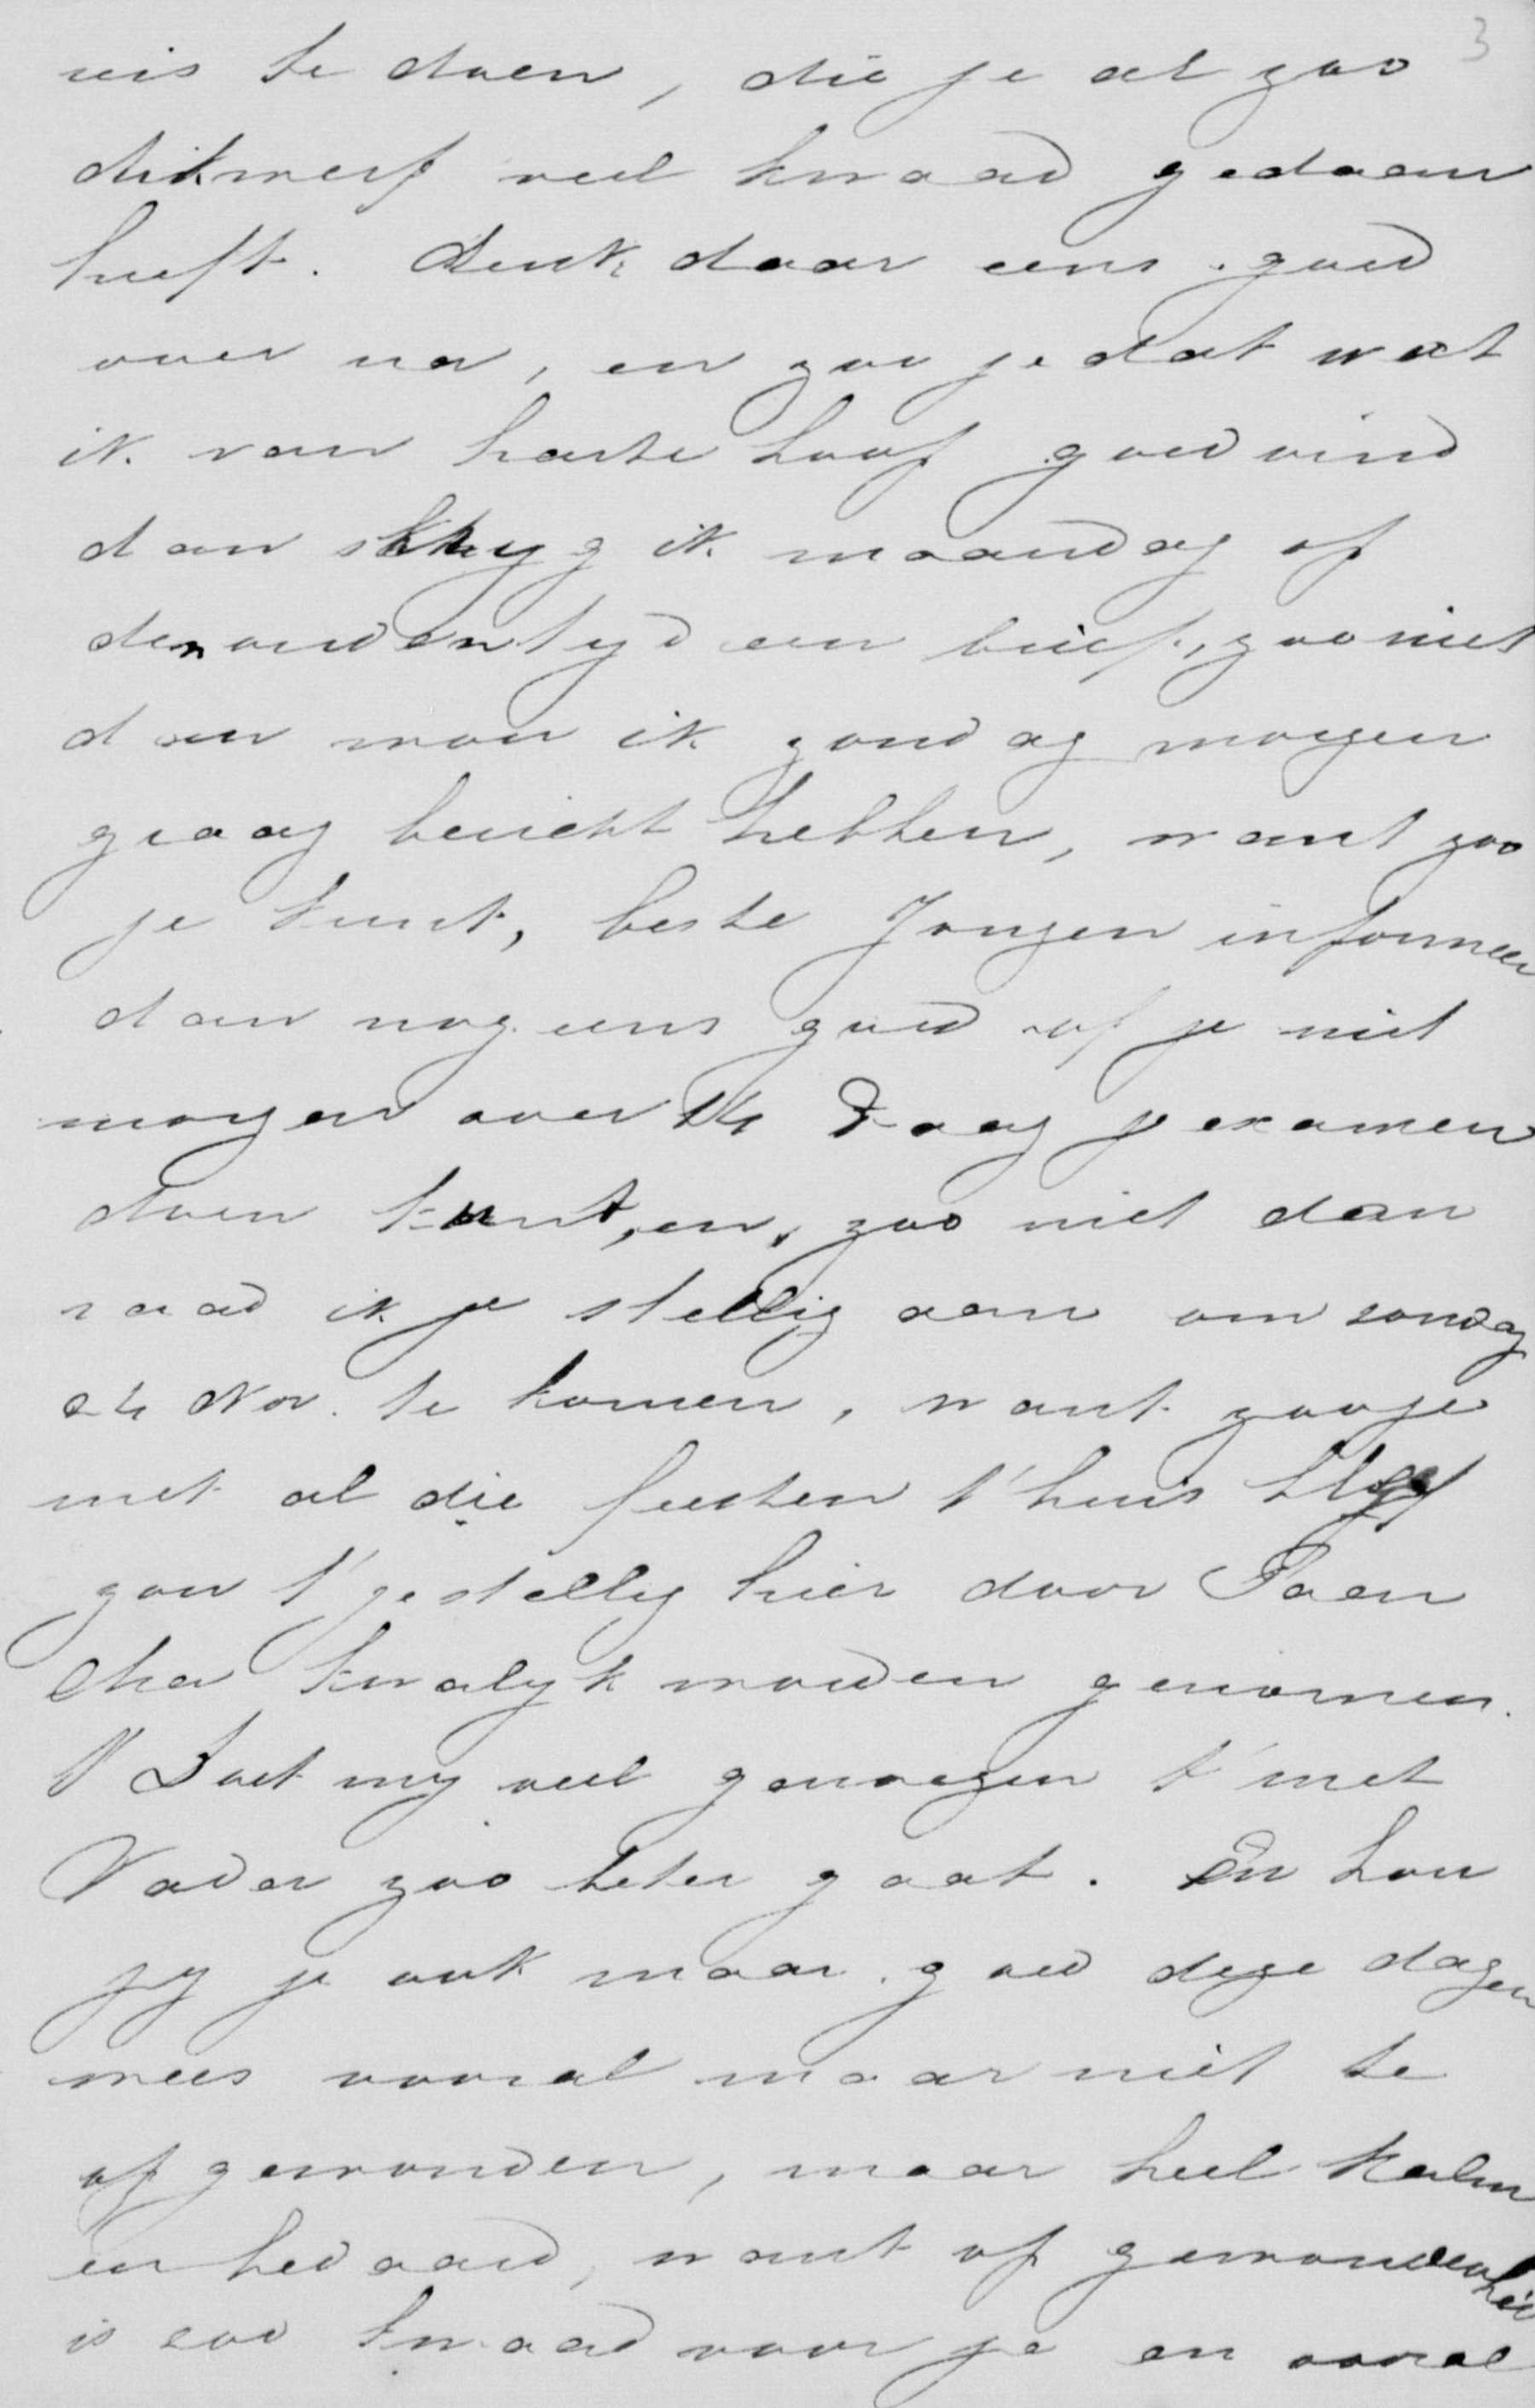 3
reis te doen, die je al zoo
dikwerf veel kwaad gedaan
heeft. Denk daar eens goed
over na, en zoo je dat wat
ik van harte hoop goedvind
dan krijg ik maandag of
den ouden tyd een brief, zoo niet
dan wou ik zondag morgen
graag bericht hebben, want zoo
je kunt, beste Jongen informeer
dan nog eens goed of je niet
morgen over 14 Daag je examen
doen kunt, en, zoo niet dan
raad ik je stellig aan om zondag
24 Nov. te komen, want zooje
met al die feesten t'huis blyf
zou t' je stellig hier door Pa en
Cha kwalyk worden genomen.
t' Doet my veel genoegen t' met
Vader zoo beter gaat. En hou
jy je ook maar goed deze dagen
wees vooral maar niet te
opgewonden, maar heel kalm
en bedaard, want opgewondenheid
is zoo kwaad voor je en vooral